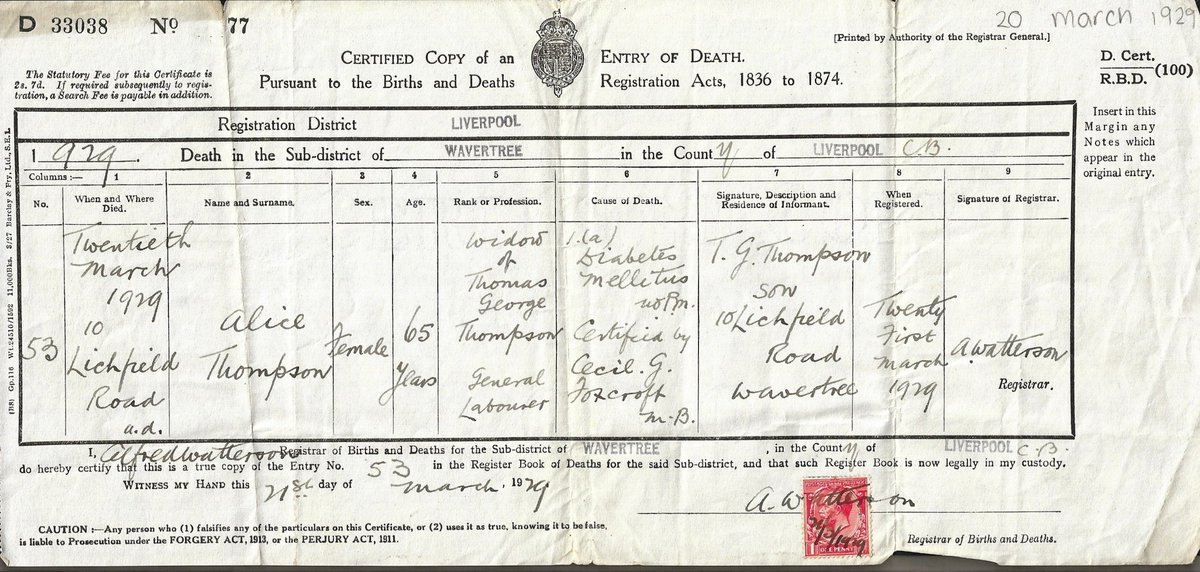 D 33038 No 77
20 March 1929
[Printed by Authority of the Registrar General.]
CERTIFIED COPY of an ENTRY OF DEATH.
Pursuant to the Births and Deaths Registration Acts, 1836 to 1874.
D. Cert.
R.B.D. (100)
The Statutory Fee for this Certificate is
2s. 7d. If required subsequently to regis-
tration, a Search Fee is payable in addition.
Insert in this
Margin any
Notes which
appear in the
original entry.
Registration District LIVERPOOL
1929. Death in the Sub-district of WAVERTREE in the County of LIVERPOOL C.B.
Columns :— 1 2 3 4 5 6 7 8 9
No. When and Where Died. Name and Surname. Sex. Age. Rank or Profession. Cause of Death. Signature, Description and Residence of Informant. When Registered. Signature of Registrar.
53
Twentieth
March
1929
10
Lichfield
Road
u.d.
Alice
Thompson
Female
65
Years
Widow
of
Thomas
George
Thompson
General
Labourer
1.(a)
Diabetes
Mellitus
no P.m.
Certified by
Cecil. G.
Foxcroft
M.B.
T. G. Thompson
Son
10 Lichfield
Road
Wavertree
Twenty
First
March
1929
A Watterson
Registrar.
I, Alfred Watterson Registrar of Births and Deaths for the Sub-district of WAVERTREE, in the County of LIVERPOOL C.B.
do hereby certify that this is a true copy of the Entry No. 53 in the Register Book of Deaths for the said Sub-district, and that such Register Book is now legally in my custody.
WITNESS MY HAND this 21st day of March, 1929
A. Watterson
ONE PENNY
21/3/1929
Registrar of Births and Deaths.
CAUTION :—Any person who (1) falsifies any of the particulars on this Certificate, or (2) uses it as true, knowing it to be false,
is liable to Prosecution under the FORGERY ACT, 1913, or the PERJURY ACT, 1911.
(B8) Gp.116 Wt.24510/1592 11,000Bks. 3/27 Barclay & Fry, Ltd., S.E.1.